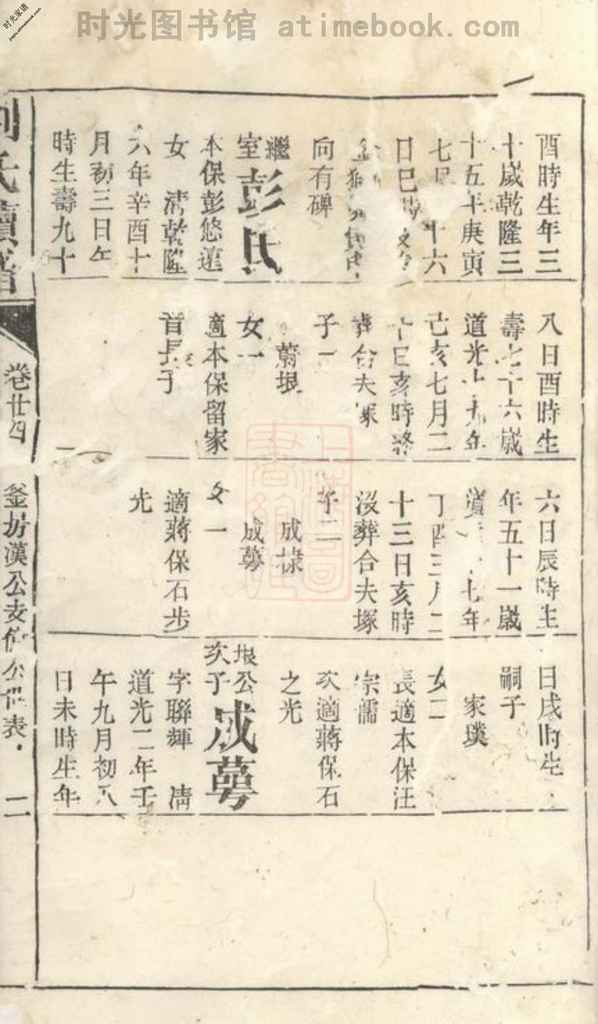 时光图书馆 - atimebook.com
时光家谱
酉時生年三
十歲乾隆三
十五年庚寅
七月十六
日巳時
向有碑
繼室彭氏
本保彭悠蓮
女 清乾隆
六年辛酉十
月初三日午
時生壽九十
八日酉時生
壽七十六歲
道光十九年
己亥七月二
十日亥時終
葬合夫塚
子一
蔚垠
女一
適本保留家
首長子
六日辰時生
年五十一歲
道光十七年
丁酉三月二
十三日亥時
沒葬合夫塚
子二
成棣
成蕚
女一
適蔣保石步
光
日戌時生
嗣子
家璞
女二
長適本保汪
宗儒
次適蔣保石
之光
垠公次子成蕚
字聯輝 清
道光二年壬
午九月初八
日未時生年
氏續譜
卷廿四
公世表
二